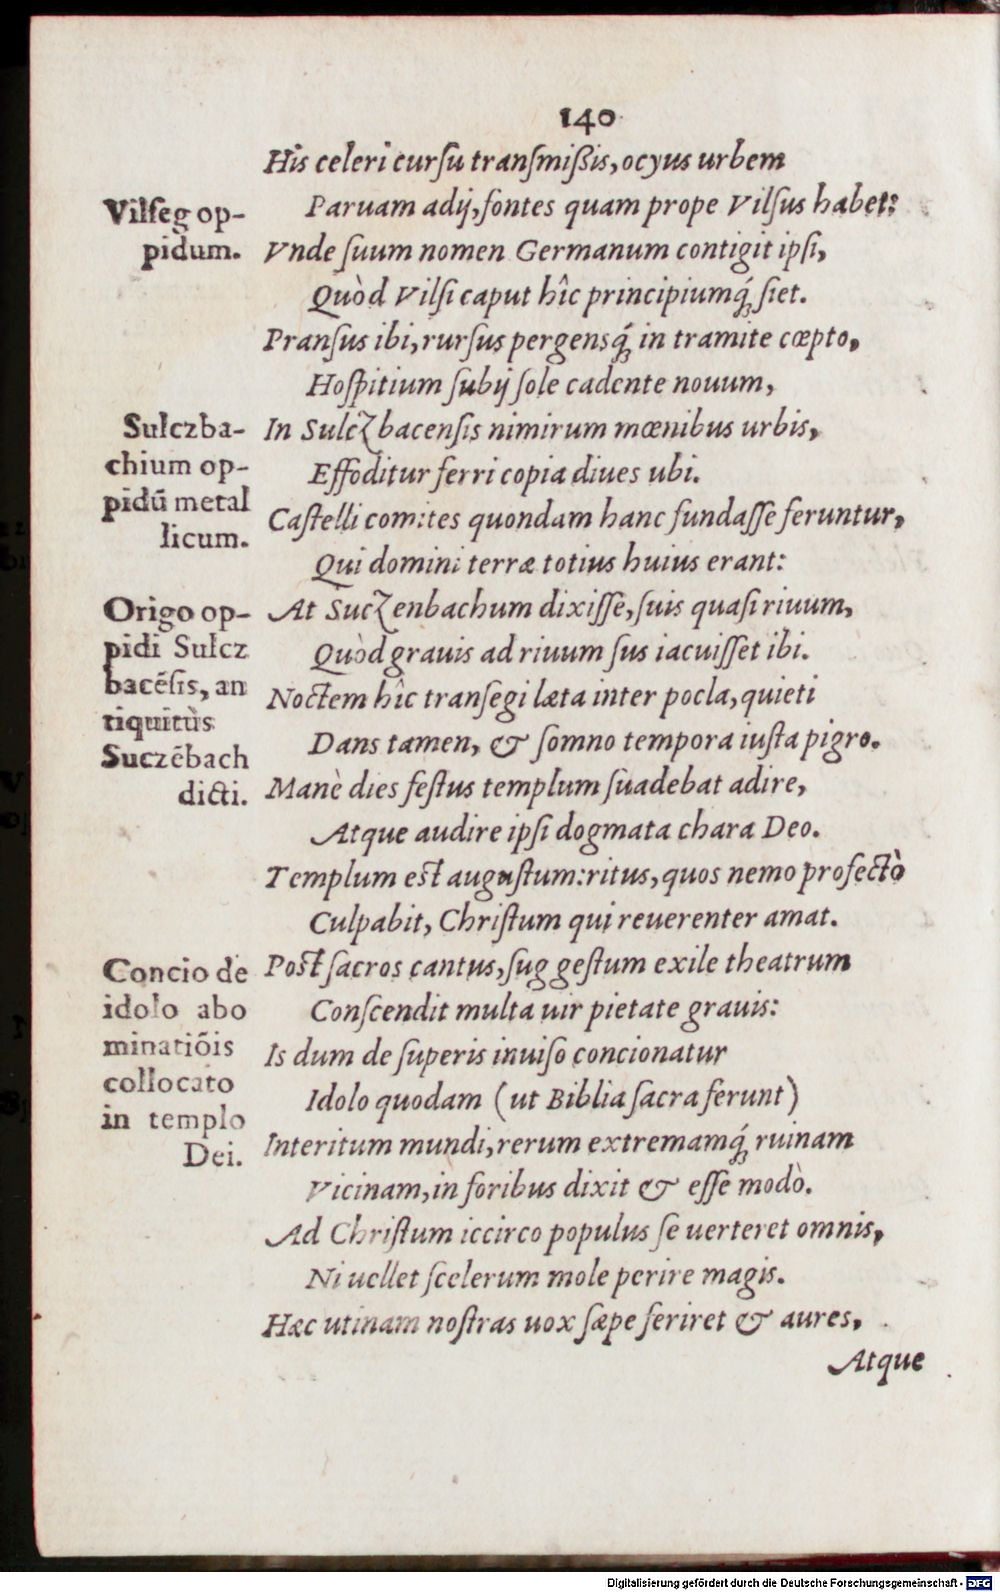 140
His celeri curſu tranſmißis, ocyus urbem
Vilſeg op-
Paruam adij, fontes quam prope Vilſus habet:
pidum.
Vnde ſuum nomen Germanum contigit ipſi,
Quòd Vilſi caput hîc principiumq́; ſiet.
Pranſus ibi, rurſus pergensq́; in tramite cœpto,
Hoſpitium ſubij ſole cadente nouum,
Sulczba-
In Sulczbacenſis nimirum mœnibus urbis,
chium op-
Effoditur ferri copia diues ubi.
pidū metal
Caſtelli comites quondam hanc fundaſſe feruntur,
licum.
Qui domini terræ totius huius erant:
Origo op-
At Suczenbachum dixiſſe, ſuis quaſi riuum,
pidi Sulcz
Quòd grauis ad riuum ſus iacuiſſet ibi.
bacēſis, an
Noctem hîc tranſegi læta inter pocla, quieti
tiquitùs
Suczēbach
Dans tamen, & ſomno tempora iuſta pigro.
dicti.
Manè dies feſtus templum ſuadebat adire,
Atque audire ipſi dogmata chara Deo.
Templum eſt auguſtum: ritus, quos nemo profectò
Culpabit, Chriſtum qui reuerenter amat.
Concio de
Poſt ſacros cantus, ſuggeſtum exile theatrum
idolo abo
Conſcendit multa uir pietate grauis:
minatiōis
Is dum de ſuperis inuiſo concionatur
collocato
Idolo quodam (ut Biblia ſacra ferunt)
in templo
Interitum mundi, rerum extremamq́; ruinam
Dei.
Vicinam, in foribus dixit & eſſe modò.
Ad Chriſtum iccirco populus ſe uerteret omnis,
Ni uellet ſcelerum mole perire magis.
Hæc utinam noſtras uox ſæpe feriret & aures,
Atque
Digitalisierung gefördert durch die Deutsche Forschungsgemeinschaft - DFG